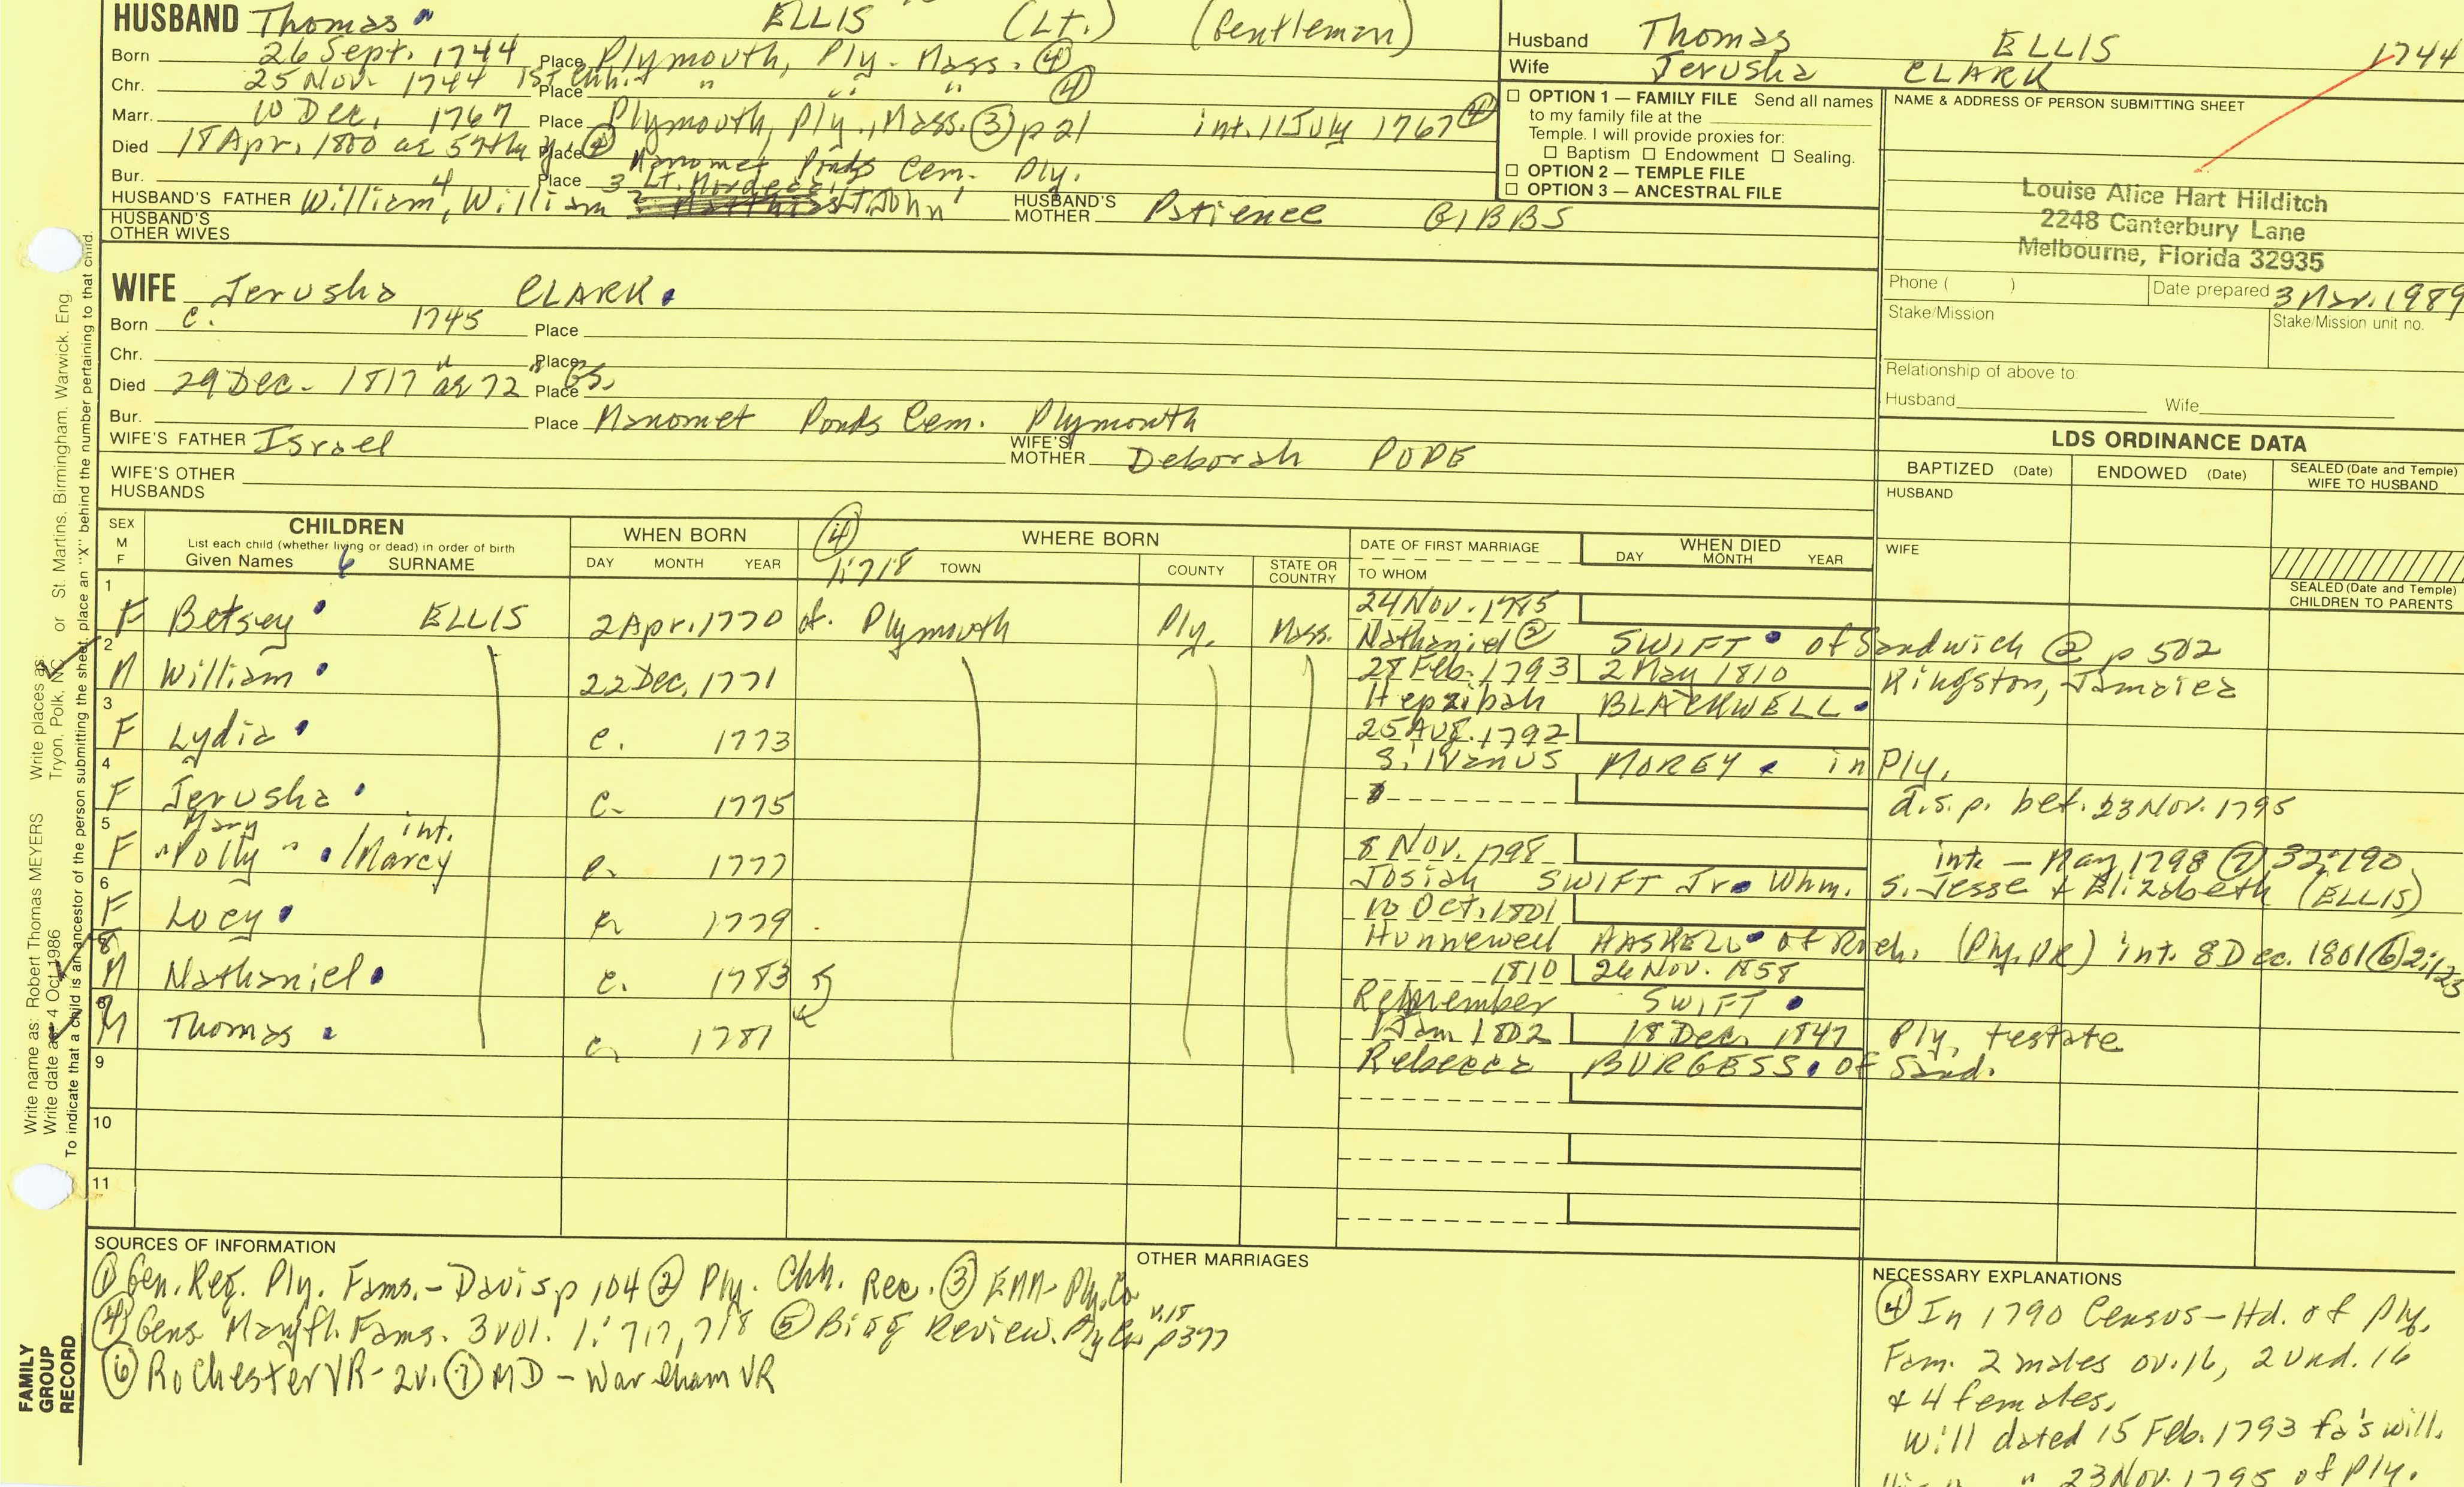 HUSBAND Thomas ELLIS (Lt.) (Gentleman)
Born 26 Sept. 1744 Place Plymouth, Ply. Mass. ④
Chr. 25 Nov. 1744 1st Chh. Place " " " ④
Marr. 10 Dec. 1767 Place Plymouth, Ply., Mass. ③ p 21 int. 11 July 1767 ④
Died 18 Apr. 1800 ae 57th y Place Manomet Ponds Cem. Ply.
Bur. Place 3 Lt. Mordecai
HUSBAND'S FATHER William 4, William Lt. John HUSBAND'S MOTHER Patience GIBBS
HUSBAND'S OTHER WIVES
Husband Thomas ELLIS 1744
Wife Jerusha CLARK
☐ OPTION 1 — FAMILY FILE Send all names
to my family file at the
Temple. I will provide proxies for:
☐ Baptism ☐ Endowment ☐ Sealing.
☐ OPTION 2 — TEMPLE FILE
☐ OPTION 3 — ANCESTRAL FILE
NAME & ADDRESS OF PERSON SUBMITTING SHEET
Louise Alice Hart Hilditch
2248 Canterbury Lane
Melbourne, Florida 32935
Phone ( ) Date prepared 3 Mar. 1989
Stake/Mission Stake/Mission unit no.
Relationship of above to:
Husband Wife
WIFE Jerusha CLARK.
Born c. 1745 Place
Chr. Place
Died 29 Dec. 1817 ae 72 Place GS.
Bur. Place Manomet Ponds Cem. Plymouth
WIFE'S FATHER Israel WIFE'S MOTHER Deborah POPE
WIFE'S OTHER HUSBANDS
LDS ORDINANCE DATA
BAPTIZED (Date) ENDOWED (Date) SEALED (Date and Temple) WIFE TO HUSBAND
HUSBAND
WIFE
SEALED (Date and Temple) CHILDREN TO PARENTS
SEX M F
CHILDREN
List each child (whether living or dead) in order of birth
Given Names SURNAME
WHEN BORN
DAY MONTH YEAR
④ 1:718
WHERE BORN
TOWN COUNTY STATE OR COUNTRY
DATE OF FIRST MARRIAGE
TO WHOM
WHEN DIED
DAY MONTH YEAR
1 F Betsey ELLIS 2 Apr. 1770 of. Plymouth Ply. Mass. 24 Nov. 1785
Nathaniel ② SWIFT of Sandwich ② p 502
2 M William 22 Dec. 1771 28 Feb. 1793 2 May 1810 Kingston, Jamaica
Hepzibah BLACKWELL
3 F Lydia c. 1773 25 Aug. 1792
Silvanus MOREY in Ply.
4 F Jerusha c. 1775 d.s.p. bef. 23 Nov. 1795
5 F Mary "Polly" /Marcy int. c. 1777 8 Nov. 1798 int. — May 1798 ⑦ 32:190
Josiah SWIFT Jr. Whm. s. Jesse & Elizabeth (ELLIS)
6 F Lucy c. 1779 10 Oct. 1801
Hunnewell HASKELL of Roch. (Ply. VR) int. 8 Dec. 1801 ⑥ 2:123
8 M Nathaniel c. 1783 1810 26 Nov. 1858
Remember SWIFT
8 M Thomas c. 1781 Jan 1802 18 Dec. 1847 Ply, testate
Rebecca BURGESS of Sand.
9
10
11
SOURCES OF INFORMATION
① Gen. Reg. Ply. Fams. - Davis p 104 ② Ply. Chh. Rec. ③ EMM - Ply. Co
④ Gens. Mayfl. Fams. 3 vol. 1:717, 718 ⑤ Biog Review. Ply Co v.18 p377
⑥ Rochester VR - 2v. ⑦ MD - Wareham VR
OTHER MARRIAGES
NECESSARY EXPLANATIONS
④ In 1790 Census - Hd. of Ply.
Fam. 2 males ov. 16, 2 und. 16
& 4 females.
Will dated 15 Feb. 1793 fa's will.
" 23 Nov. 1795 of Ply.
Write name as: Robert Thomas MEYERS Write places as: Tryon, Polk, NC or St. Martins, Birmingham, Warwick, Eng
Write date as: 4 Oct 1986
To indicate that a child is an ancestor of the person submitting the sheet, place an "X" behind the number pertaining to that child.
FAMILY GROUP RECORD